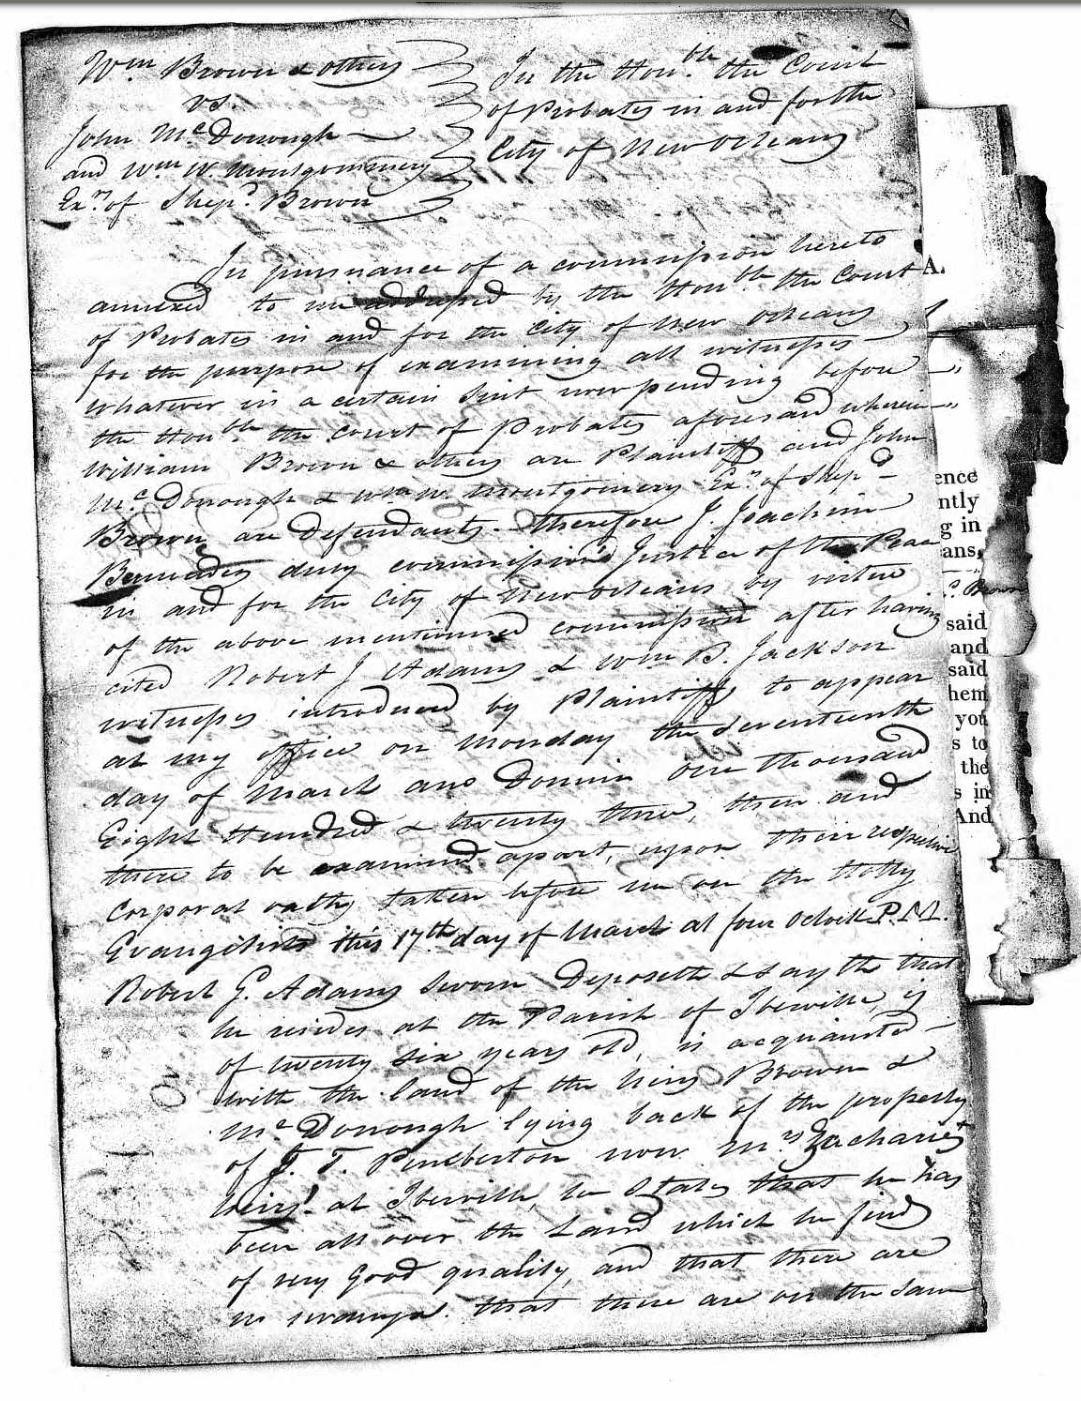 Wm Brown & others
vs.
John McDonough
and Wm W. Montgomery
Exrs of Shepd Brown
In the Honble the Court
of Probates in and for the
City of New Orleans
In pursuance of a commission hereto
annexed to me addressed by the Honble the Court
of Probates in and for the City of New Orleans
for the purpose of examining all witnesses
whatever in a certain Suit now pending before
the Honble the Court of Probates aforesaid wherein
William Brown & others are Plaintiffs and John
McDonough & Wm W. Montgomery Exrs of Shepd
Brown are Defendants. Therefore I. Joachim
Bermudez duly commission'd Justice of the Peace
in and for the City of New Orleans by virtue
of the above mentionned commission after having
cited Robert J Adams & Wm B. Jackson
witnesses introduced by Plaintiffs to appear
at my office on Monday the Seventeenth
day of March ano Domini One thousand
Eight Hundred & twenty three, then and
there to be examined apart, upon their respective
Corporal oaths taken before me on the Holly
Evangelists this 17th day of March at four Oclock P.M.
Robert G. Adams Sworn Deposeth & sayth that
he resides at the Parish of Iberville, is
of twenty six years old, is acquainted
with the land of the heirs Brown &
McDonough lying back of the property
of J. T. Pemberton now Mrs Zacharie's
heirs! at Iberville, he States that he has
been all over the Land which he finds
of very good quality, and that there are
no swamps. that there are on the same
A.
ence
ntly
g in
ans,
Brown
said
and
said
hem
you
s to
the
s in
And